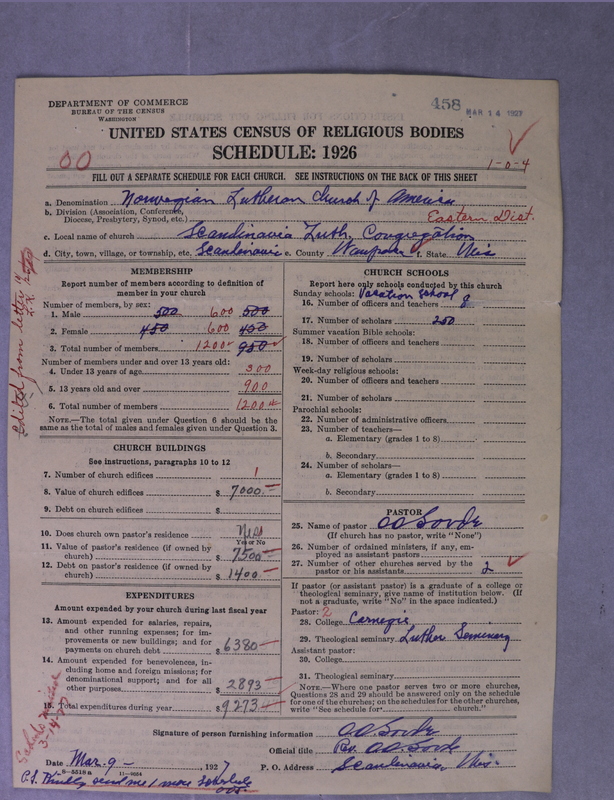 DEPARTMENT OF COMMERCE
BUREAU OF THE CENSUS
WASHINGTON
458
MAR 14 1927
UNITED STATES CENSUS OF RELIGIOUS BODIES
SCHEDULE: 1926
00
1-0-4
FILL OUT A SEPARATE SCHEDULE FOR EACH CHURCH. SEE INSTRUCTIONS ON THE BACK OF THIS SHEET
a. Denomination Norwegian Lutheran Church of America
b. Division (Association, Conference, Diocese, Presbytery, Synod, etc.) Eastern Dist.
c. Local name of church Scandinavia Luth. Congregation
d. City, town, village, or township, etc. Scandinavia e. County Waupaca f. State Wis
Edited from letter
MEMBERSHIP
Report number of members according to definition of
member in your church
Number of members, by sex:
1. Male 500 600 500
2. Female 450 600 450
3. Total number of members 1200 950
Number of members under and over 13 years old:
4. Under 13 years of age 300
5. 13 years old and over 900
6. Total number of members 1200
NOTE.—The total given under Question 6 should be
same as the total of males and females given under Question 3.
CHURCH BUILDINGS
See instructions, paragraphs 10 to 12
7. Number of church edifices 1
8. Value of church edifices $ 7000.
9. Debt on church edifices $
10. Does church own pastor's residence Yes
Yes or No
11. Value of pastor's residence (if owned by
church) $ 7500
12. Debt on pastor's residence (if owned by
church) $ 1400
EXPENDITURES
Amount expended by your church during last fiscal year
13. Amount expended for salaries, repairs,
and other running expenses; for im-
provements or new buildings; and for
payments on church debt $ 6380
14. Amount expended for benevolences, in-
cluding home and foreign missions; for
denominational support; and for all
other purposes $ 2893
15. Total expenditures during year $ 9273
CHURCH SCHOOLS
Report here only schools conducted by this church
Sunday schools: Vacation School
16. Number of officers and teachers 8
17. Number of scholars 250
Summer vacation Bible schools:
18. Number of officers and teachers
19. Number of scholars
Week-day religious schools:
20. Number of officers and teachers
21. Number of scholars
Parochial schools:
22. Number of administrative officers
23. Number of teachers—
a. Elementary (grades 1 to 8)
b. Secondary
24. Number of scholars—
a. Elementary (grades 1 to 8)
b. Secondary
PASTOR
25. Name of pastor
(If church has no pastor, write "None")
26. Number of ordained ministers, if any, em-
ployed as assistant pastors
27. Number of other churches served by the
pastor or his assistants 2
If pastor (or assistant pastor) is a graduate of a college or
theological seminary, give name of institution below. (If
not a graduate, write "No" in the space indicated.)
Pastor: 2
28. College Carnegie
29. Theological seminary Luther Seminary
Assistant pastor:
30. College
31. Theological seminary
NOTE.—Where one pastor serves two or more churches,
Questions 28 and 29 should be answered only on the schedule
for one of the churches; on the schedules for the other churches,
write "See schedule for church."
Signature of person furnishing information
Official title Rev.
Date Mar. 9 -, 1927 P. O. Address Scandinavia Wis.
8-5518 a
P.S. Kindly send me 1 more Schedule